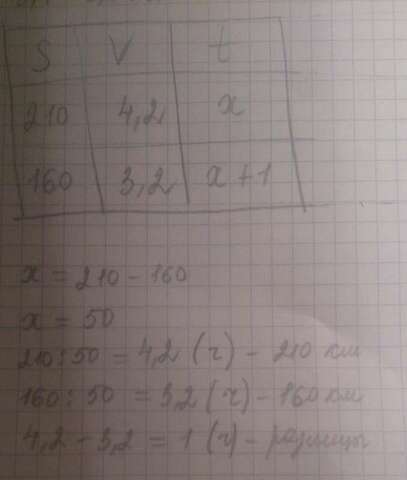 S V t
210 4,2 x
160 3,2 x+1
x = 210 - 160
x = 50
210:50 = 4,2 (ч) - 210 км
160:50 = 3,2 (ч) - 160 км
4,2 - 3,2 = 1 (ч) - разницы